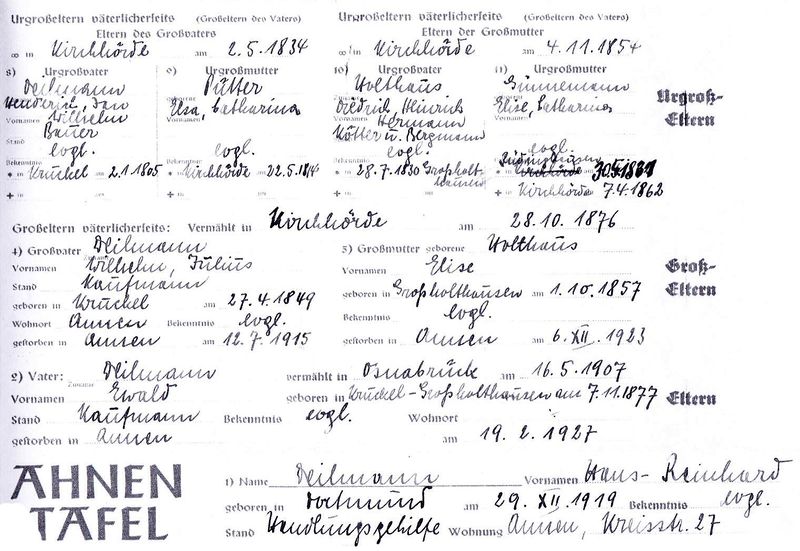 Urgroßeltern väterlicherseits (Großeltern des Vaters)
Eltern des Großvaters
∞ in Kirchhörde am 2.5.1834
8) Urgroßvater
Deilmann
Henderich, Jan
Vornamen Wilhelm
Bauer
Stand
evgl.
Bekenntnis
* in Kruckel am 2.1.1805
+ in
9) Urgroßmutter
Pütter
geborene
Elsa, Catharina
Vornamen
evgl.
Bekenntnis
* in Kirchhörde am 22.5.
+ in
Urgroßeltern väterlicherseits (Großeltern des Vaters)
Eltern der Großmutter
∞ in Kirchhörde am 4.11.1854
10) Urgroßvater
Holthaus
Diedrich, Heinrich
Vornamen Hermann
Kötter u. Bergmann
Stand
evgl.
Bekenntnis
* in 28.7.1830 Großholthausen
+ in
11) Urgroßmutter
geborene
Elise, Catharina
Vornamen
evgl.
Bekenntnis
* in
+ in Kirchhörde 7.4.1862
Urgroß-
Eltern
Großeltern väterlicherseits: Vermählt in Kirchhörde am 28.10.1876
4) Großvater Deilmann
Zuname
Vornamen Wilhelm, Julius
Stand Kaufmann
geboren in Kruckel am 27.4.1849
Wohnort Annen Bekenntnis evgl.
gestorben in Annen am 12.7.1915
5) Großmutter geborene Holthaus
Vornamen Elise
geboren in Großholthausen am 1.10.1857
Bekenntnis evgl.
gestorben in Annen am 6.XII.1923
Groß-
Eltern
2) Vater: Deilmann vermählt in Osnabrück am 16.5.1907
Zuname
Vornamen Ewald geboren in Kruckel-Großholthausen am 7.11.1877
Stand Kaufmann Bekenntnis evgl. Wohnort
gestorben in Annen am 19.2.1927
Eltern
AHNEN
TAFEL
1) Name Deilmann Vornamen Hans-Reinhard
geboren in Dortmund am 29.XII.1919 Bekenntnis evgl.
Stand Handlungsgehilfe Wohnung Annen, Kreisstr. 27